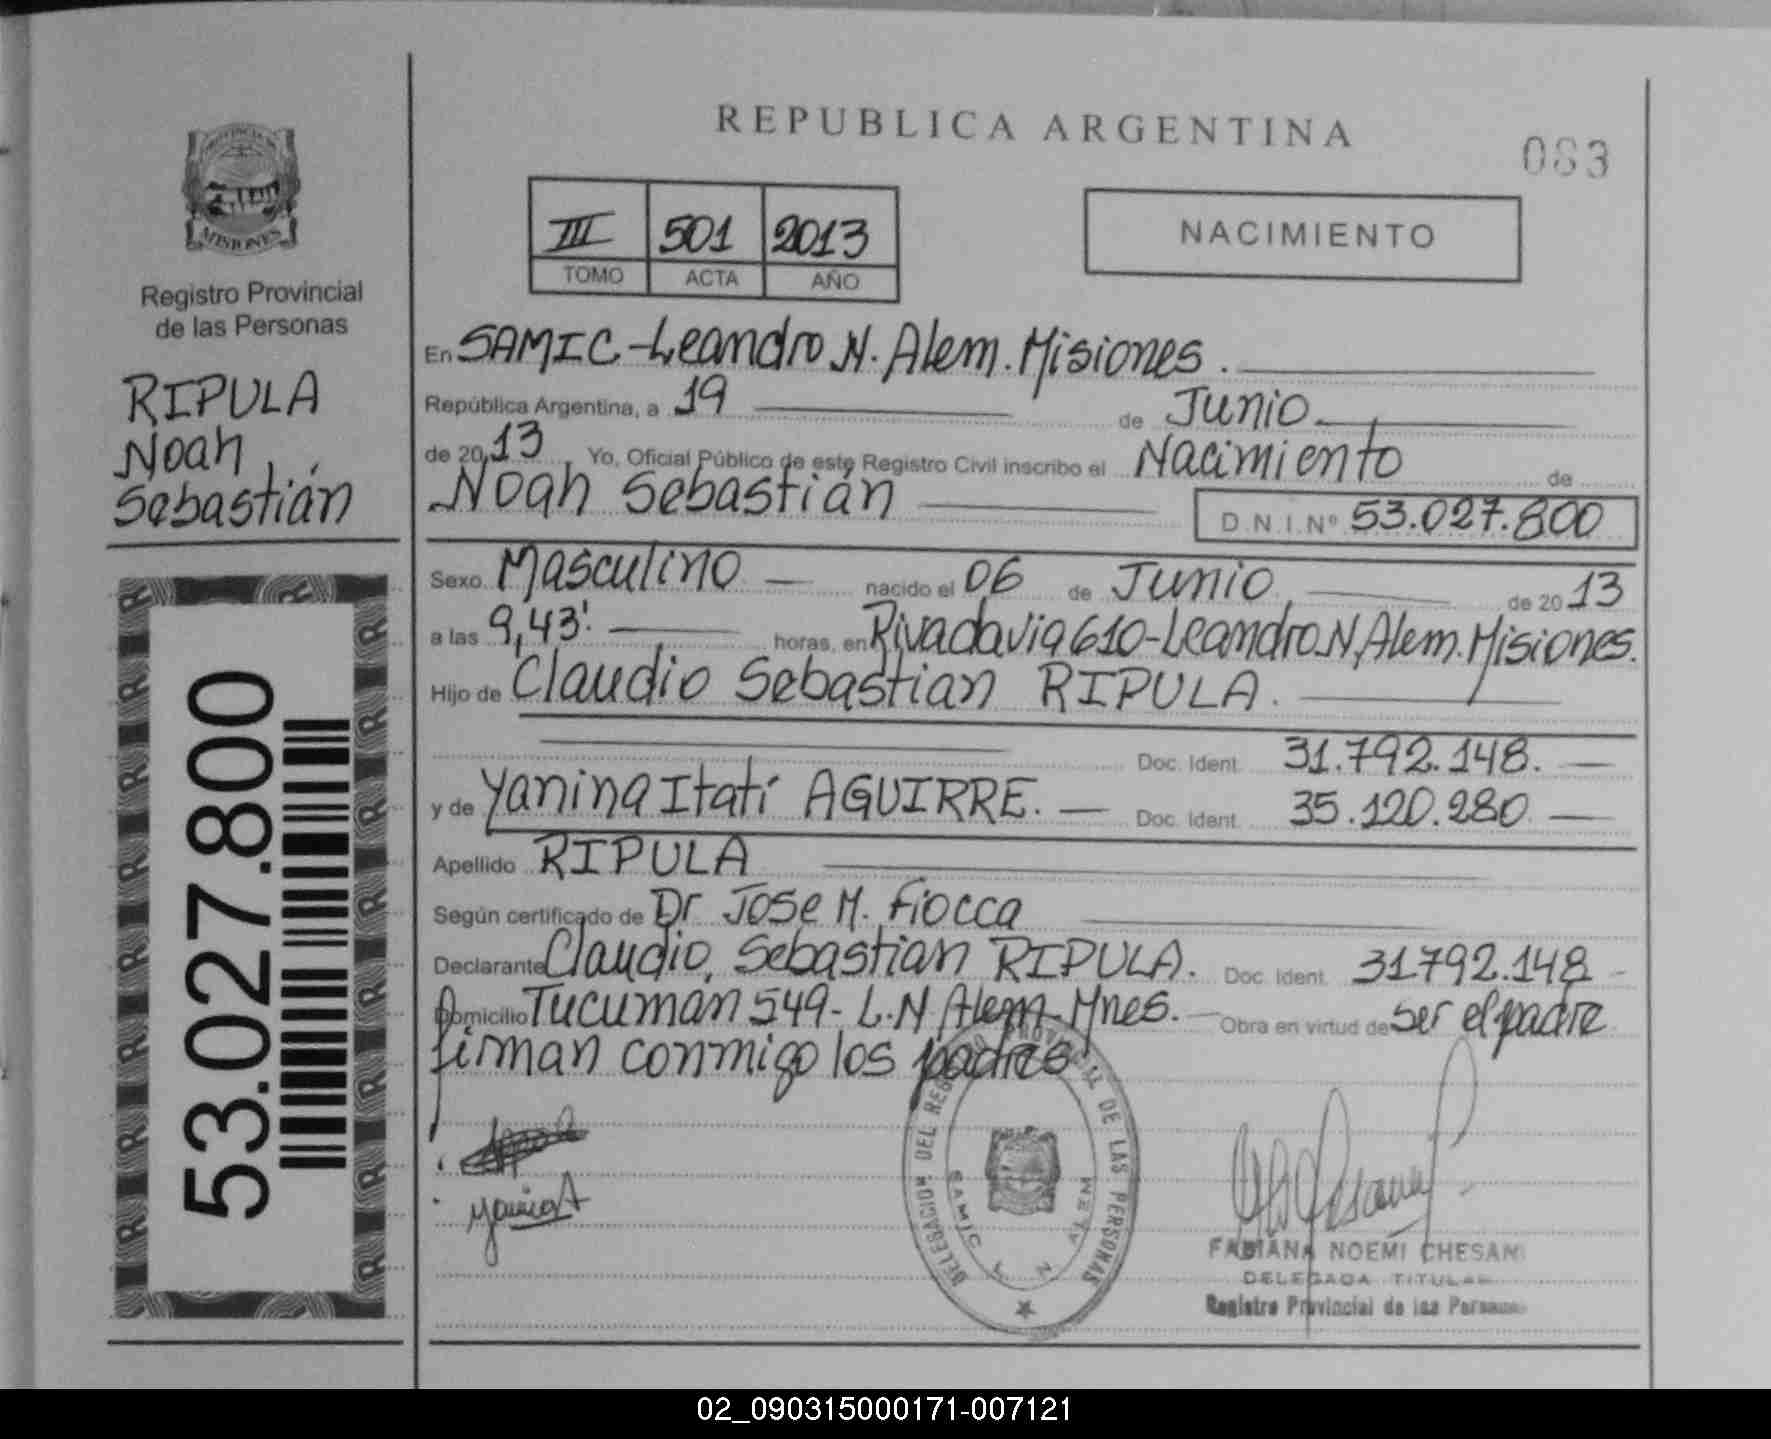 REPUBLICA ARGENTINA
083
MISIONES
Registro Provincial
de las Personas
RIPULA
Noah
Sebastián
III 501 2013
TOMO ACTA AÑO
NACIMIENTO
En SAMIC-Leandro N. Alem. Misiones.
República Argentina, a 19 de Junio
de 2013 Yo, Oficial Público de este Registro Civil inscribo el Nacimiento de
Noah Sebastián
D.N.I.Nº 53.027.800
Sexo Masculino nacido el 06 de Junio de 2013
a las 9,43' horas, en Rivadavia 610-Leandro N. Alem. Misiones.
Hijo de Claudio Sebastian RIPULA.
Doc. Ident. 31.792.148.
y de Yanina Itatí AGUIRRE. Doc. Ident. 35.120.280
Apellido RIPULA
Según certificado de Dr Jose M. Fiocca
Declarante Claudio, Sebastian RIPULA. Doc. Ident. 31792.148
Domicilio Tucuman 549- L.N Alem- Mnes. Obra en virtud de ser el padre
firman conmigo los padres
53.027.800
DELEGACION DEL REGISTRO PROVINCIAL DE LAS PERSONAS
SAMIC L N ALEM
Yanina A
FABIANA NOEMI CHESANI
DELEGADA TITULAR
Registro Provincial de las Personas
02_090315000171-007121